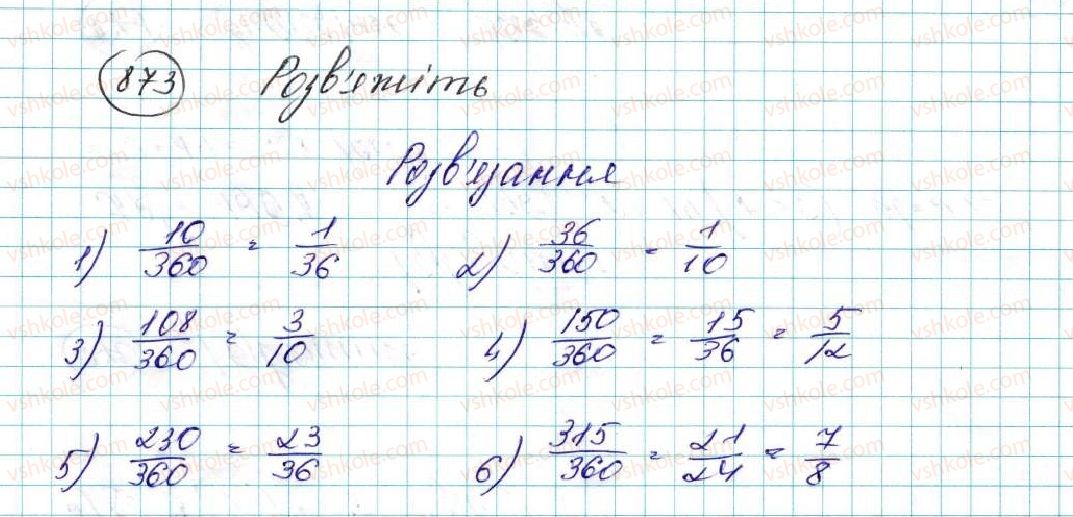 873 Розв'яжіть
Розв'язання
1) 10/360 = 1/36 2) 36/360 = 1/10
3) 108/360 = 3/10 4) 150/360 = 15/36 = 5/12
5) 230/360 = 23/36 6) 315/360 = 21/24 = 7/8